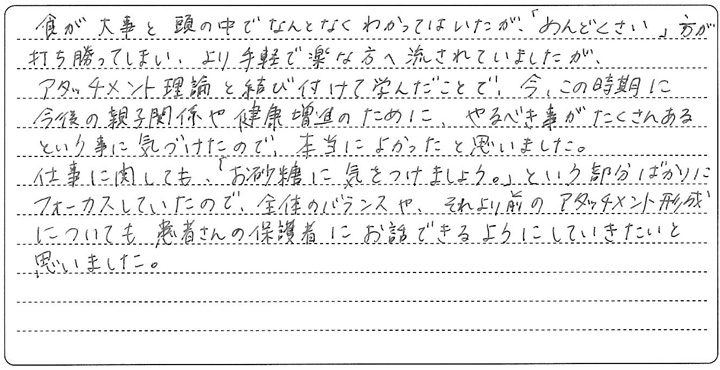 食が大事と頭の中でなんとなくわかってはいたが、「めんどくさい」方が
打ち勝ってしまい、より手軽で楽な方へ流されていましたが、
アタッチメント理論と結び付けて学んだことで、今、この時期に
今後の親子関係や健康増進のために、やるべき事がたくさんある
という事に気づけたので、本当によかったと思いました。
仕事に関しても、「お砂糖に気をつけましょう。」という部分ばかりに
フォーカスしていたので、全体のバランスや、それより前のアタッチメント形成
についても患者さんの保護者にお話できるようにしていきたいと
思いました。